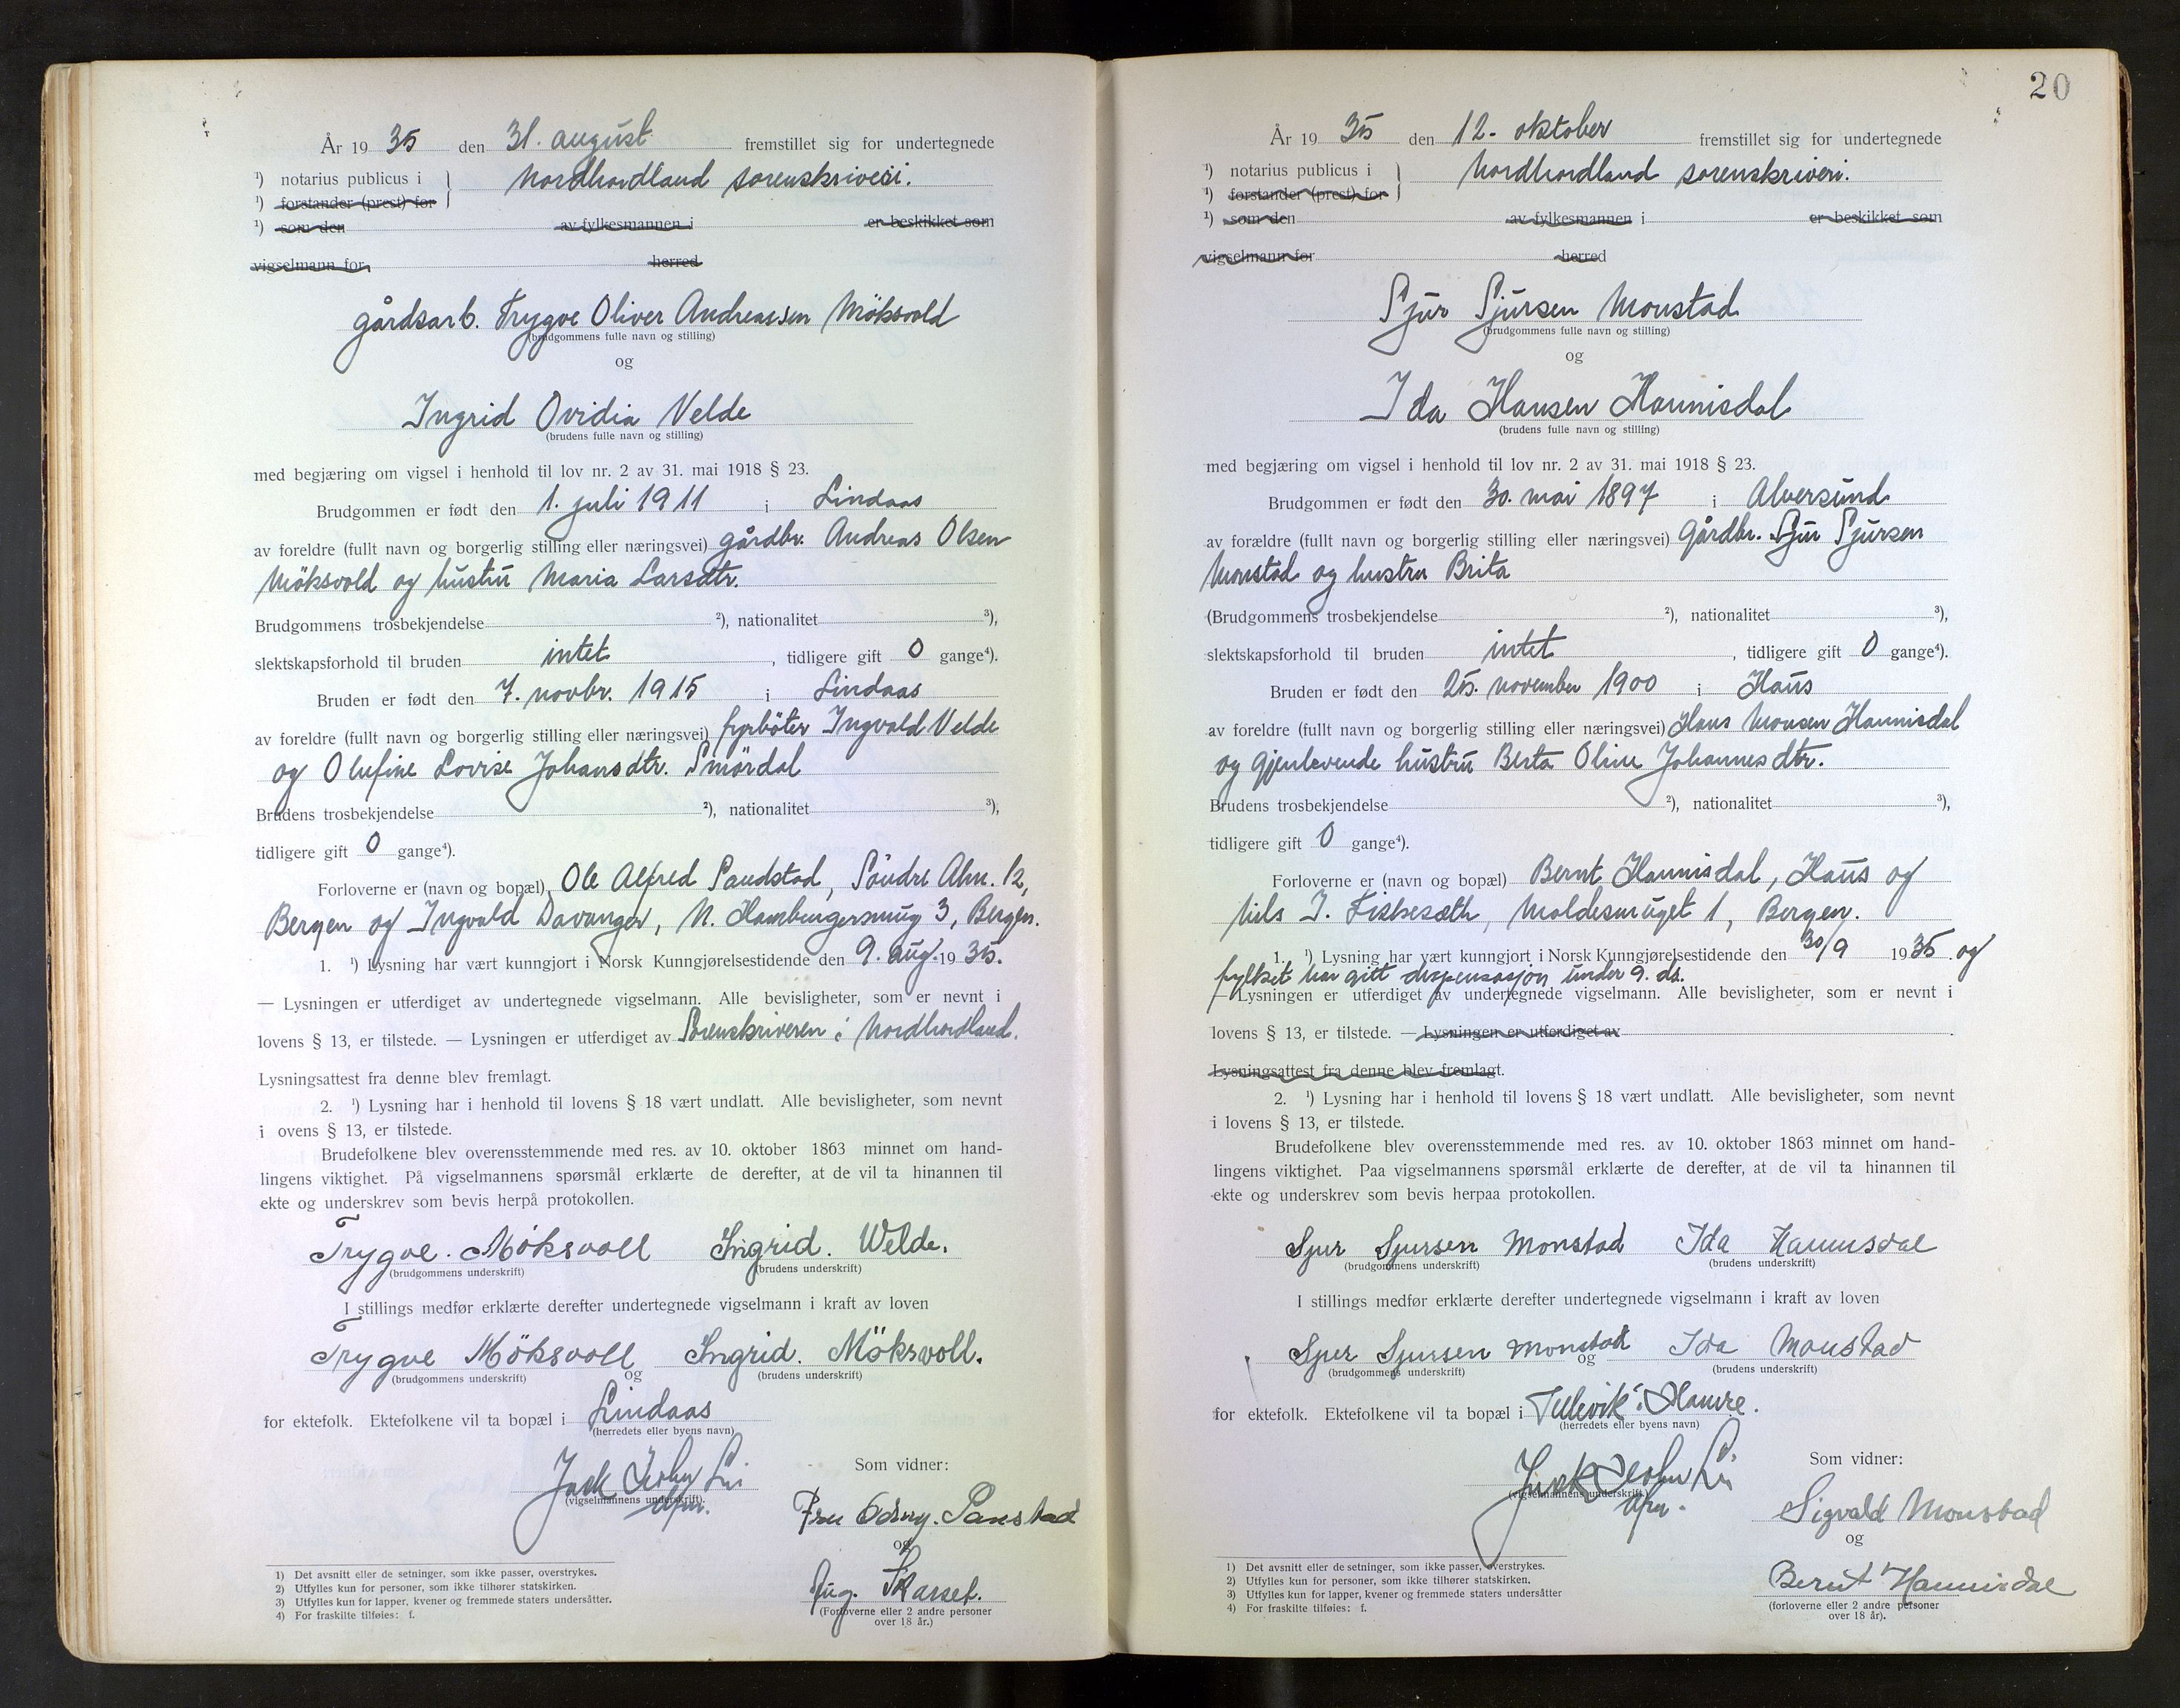 År 19 35 den 31. august fremstillet sig for undertegnede
¹) notarius publicus i } Nordhordland sorenskriveri.
¹) forstander (prest) for
¹) som den av fylkesmannen i er beskikket som
vigselmann for herred
gårdsarb. Trygve Oliver Andreassen Möksvold
(brudgommens fulle navn og stilling)
og
Ingrid Ovidia Velde
(brudens fulle navn og stilling)
med begjæring om vigsel i henhold til lov nr. 2 av 31. mai 1918 § 23.
Brudgommen er født den 1. juli 1911 i Lindaas
av foreldre (fullt navn og borgerlig stilling eller næringsvei) gårdbr. Andreas Olsen
Möksvold og hustru Maria Larsdtr.
Brudgommens trosbekjendelse ²), nationalitet ³),
slektskapsforhold til bruden intet , tidligere gift 0 gange⁴).
Bruden er født den 7. novbr. 1915 i Lindaas
av foreldre (fullt navn og borgerlig stilling eller næringsvei) fyrböter Ingvald Velde
og Olufine Lovise Johansdtr. Smördal
Brudens trosbekjendelse ²), nationalitet ³),
tidligere gift 0 gange⁴).
Forloverne er (navn og bopæl) Ole Alfred Sandstad, Söndre Alm. 12,
Bergen og Ingvald Davanger, N. Hamburgersmug 3, Bergen.
1. ¹) Lysning har vært kunngjort i Norsk Kunngjørelsestidende den 9. aug. 19 35.
— Lysningen er utferdiget av undertegnede vigselmann. Alle bevisligheter, som er nevnt i
lovens § 13, er tilstede. — Lysningen er utferdiget av Sorenskriveren i Nordhordland.
Lysningsattest fra denne blev fremlagt.
2. ¹) Lysning har i henhold til lovens § 18 vært undlatt. Alle bevisligheter, som nevnt
i ovens § 13, er tilstede.
Brudefolkene blev overensstemmende med res. av 10. oktober 1863 minnet om hand-
lingens viktighet. På vigselmannens spørsmål erklærte de derefter, at de vil ta hinannen til
ekte og underskrev som bevis herpå protokollen.
Trygve. Möksvoll Ingrid. Welde.
(brudgommens underskrift) (brudens underskrift)
I stillings medfør erklærte derefter undertegnede vigselmann i kraft av loven
Trygve Möksvoll Ingrid. Möksvoll.
(brudgommens underskrift) og (brudens underskrift)
for ektefolk. Ektefolkene vil ta bopæl i Lindaas
(herredets eller byens navn)
Jack John Li Som vidner:
(vigselmannens underskrift).
Fru Odny. Sanstad
og
Aug. Skarset.
(Forloverne eller 2 andre personer
over 18 år.)
1) Det avsnitt eller de setninger, som ikke passer, overstrykes.
2) Utfylles kun for personer, som ikke tilhører statskirken.
3) Utfylles kun for lapper, kvener og fremmede staters undersåtter.
4) For fraskilte tilføies: f.
20
År 19 35 den 12. oktober fremstillet sig for undertegnede
¹) notarius publicus i } Nordhordland sorenskriveri.
¹) forstander (prest) for
¹) som den av fylkesmannen i er beskikket som
vigselmann for herred
Sjur Sjursen Monstad
(brudgommens fulle navn og stilling)
og
Ida Hansen Hannisdal
(brudens fulle navn og stilling)
med begjæring om vigsel i henhold til lov nr. 2 av 31. mai 1918 § 23.
Brudgommen er født den 30. mai 1897 i Alversund
av forældre (fullt navn og borgerlig stilling eller næringsvei) Gårdbr. Sjur Sjursen
Monstad og hustru Brita
(Brudgommens trosbekjendelse ²), nationalitet ³),
slektskapsforhold til bruden intet , tidligere gift 0 gange⁴).
Bruden er født den 25. november 1900 i Haus
av foreldre (fullt navn og borgerlig stilling eller næringsvei) Hans Monsen Hannisdal
og gjenlevende hustru Berta Oline Johannesdtr.
Brudens trosbekjendelse ²), nationalitet ³),
tidligere gift 0 gange⁴).
Forloverne er (navn og bopæl) Bernt Hannisdal, Haus og
Nils J. Fiskesæth, Moldesmuget 1, Bergen.
1. ¹) Lysning har vært kunngjort i Norsk Kunngjørelsestidende den 30/9 19 35 og
fylket har gitt dispensasjon under 9. ds.
— Lysningen er utferdiget av undertegnede vigselmann. Alle bevisligheter, som er nevnt i
lovens § 13, er tilstede. — Lysningen er utferdiget av .
Lysningsattest fra denne blev fremlagt.
2. ¹) Lysning har i henhold til lovens § 18 vært undlatt. Alle bevisligheter, som nevnt
i lovens § 13, er tilstede.
Brudefolkene blev overensstemmende med res. av 10. oktober 1863 minnet om hand-
lingens viktighet. Paa vigselmannens spørsmål erklærte de derefter, at de vil ta hinannen til
ekte og underskrev som bevis herpaa protokollen.
Sjur Sjursen Monstad Ida Hannisdal
(brudgommens underskrift) (brudens underskrift)
I stillings medfør erklærte derefter undertegnede vigselmann i kraft av loven
Sjur Sjursen Monstad og Ida Monstad
(brudgommens underskrift) (brudens underskrift)
for ektefolk. Ektefolkene vil ta bopæl i Tellevik i Hamre.
(herredets eller byens navn)
Jack John Li Som vidner:
(vigselmannens underskrift)
Sigvald Monstad
og
Bernt Hannisdal
(forloverne eller 2 andre personer
over 18 år).
1) Det avsnitt eller de setninger, som ikke passer, overstrykes.
2) Utfylles kun for personer, som ikke tilhører statskirken.
3) Utfylles kun for lapper, kvener og fremmede staters undersåtter
4) For fraskilte tilføies: f.